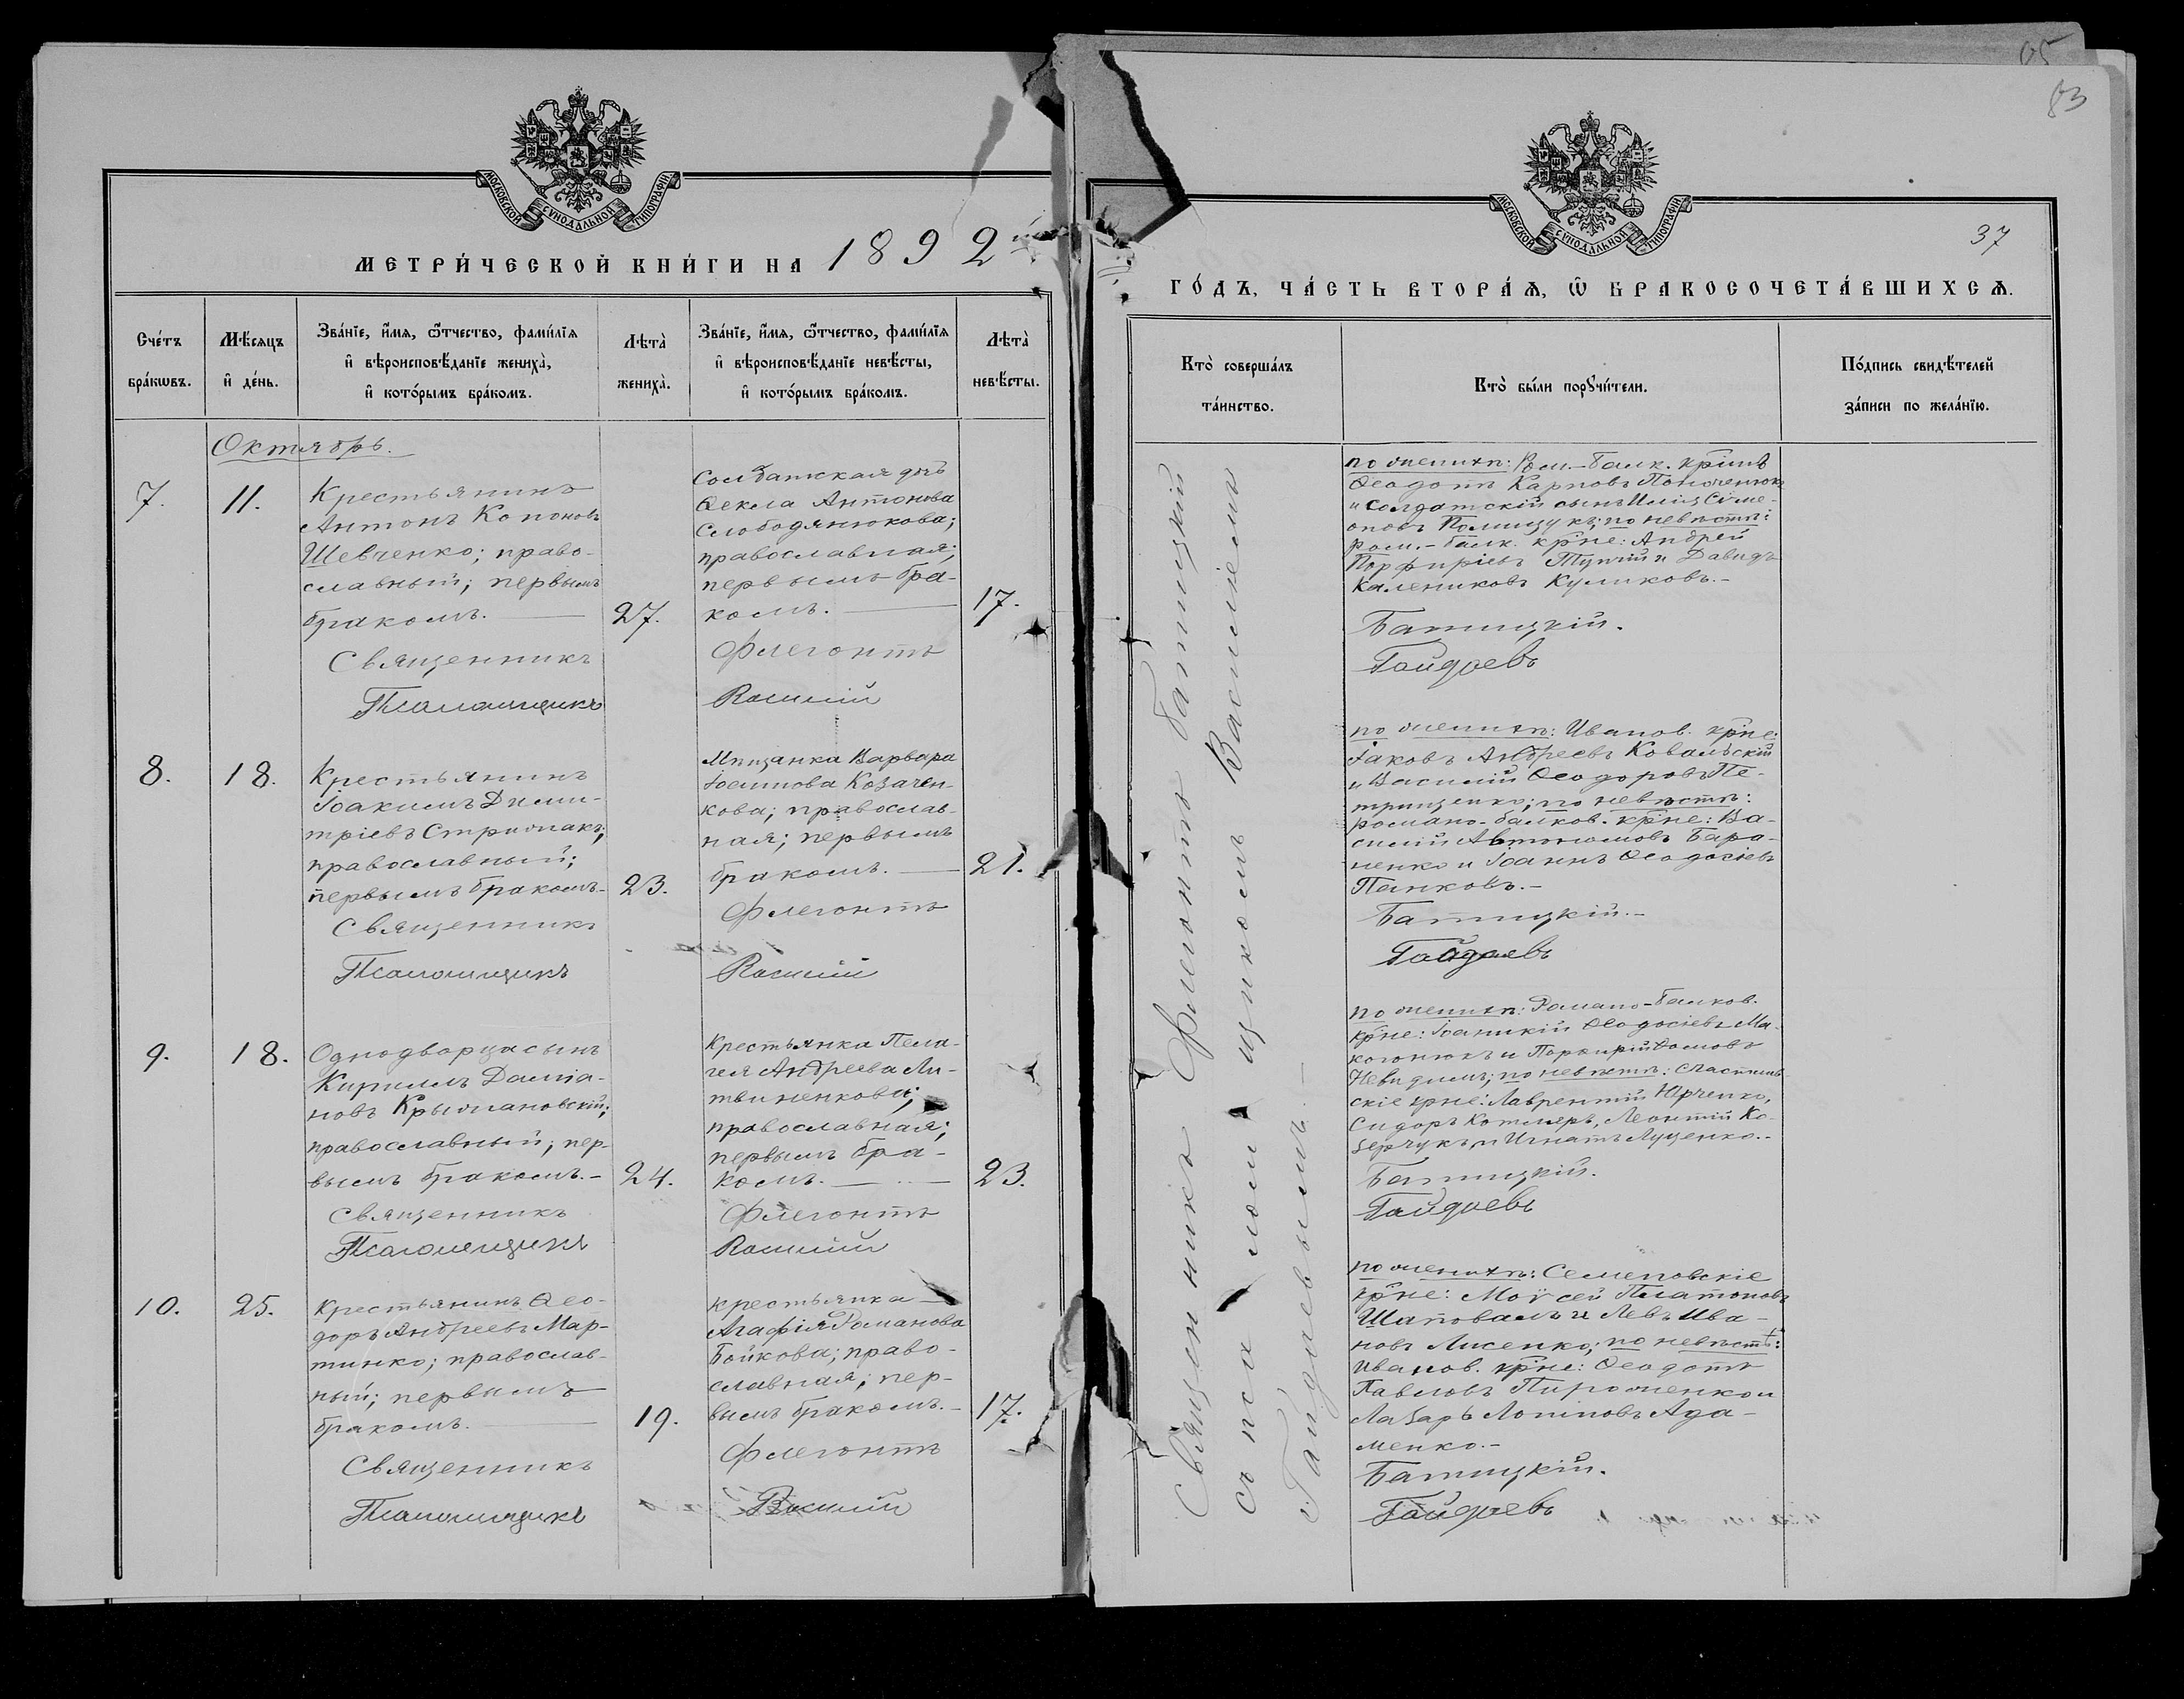 МОСКОВСКОЙ СѴНОДАЛЬНОЙ ТИПОГРАФІИ
МЕТРИ́ЧЕСКОЙ КНИ́ГИ НА 1892
Сче́тъ
бра́кωвъ.
Мѣ́сяцъ
и҆ де́нь.
Зва́нїе, и҆́мѧ, ѻ҆́тчество, фами́лїѧ
и҆ вѣроисповѣ́данїе жениха̀,
и҆ кото́рымъ бра́комъ.
Лѣта̀
жениха̀.
Зва́нїе, и҆́мѧ, ѻ҆́тчество, фами́лїѧ
и҆ вѣроисповѣ́данїе невѣ́сты,
и҆ кото́рымъ бра́комъ.
Лѣта̀
невѣ́сты.
Октябрь.
7.
11.
Крестьянинъ
Антонъ Кононовъ
Шевченко; право-
славный; первымъ
бракомъ.
27.
Солдатская дочь
Ѳекла Антонова
Слободянюкова;
православная;
первымъ бра-
комъ.
17.
Священникъ
Флегонтъ
Псаломщикъ
Василій
8.
18.
Крестьянинъ
Іоакимъ Дими-
тріевъ Стрижакъ;
православный;
первымъ бракомъ.-
23.
Мѣщанка Варвара
Іоаннова Козачен-
кова; православ-
ная; первымъ
бракомъ.
21.
Священникъ
Флегонтъ
Псаломщикъ
Василій
9.
18.
Однодворца сынъ
Кириллъ Даміа-
новъ Крыжановскій;
православный; пер-
вымъ бракомъ.-
24.
Крестьянка Пела-
гея Андреева Ли-
твиненкова;
православная;
первымъ бра-
комъ.
23.
Священникъ
Флегонтъ
Псаломщикъ
Василій
10.
25.
Крестьянинъ Ѳео-
доръ Андреевъ Мар-
тинко; православ-
ный; первымъ
бракомъ.
19.
Крестьянка
Агафія Романова
Бойкова; право-
славная; пер-
вымъ бракомъ.-
17.
Священникъ
Флегонтъ
Псаломщикъ
Василій
83
37
МОСКОВСКОЙ СѴНОДАЛЬНОЙ ТИПОГРАФІИ
ГО́ДЪ, ЧА́СТЬ ВТОРА́Ѧ, Ѽ БРАКОСОЧЕТА́ВШИХСѦ.
Кто̀ соверша́лъ
та́инство.
Кто̀ бы́ли порꙋчи́тели.
По́дпись свидѣ́телей
за́писи по жела́нїю.
Священникъ Флегонтъ Батицкій
съ псаломщикомъ Василіемъ
Гайдаевымъ.
по женихѣ: Ром.-Балк. кр–не
Ѳеодотъ Карповъ
и Солдатскій сынъ Симе-
оновъ Полищукъ; по невѣстѣ:
Ром.-балк. кр–не: Андрей
Порфиріевъ и Давидъ
Калениковъ Куликовъ.-
Батицкій.
Гайдаевъ
по женихѣ: Иванов. кр–не:
Іаковъ Андреевъ Ковальскій
и Василій Ѳеодоровъ Пе-
трищенко; по невѣстѣ:
романо-балков. кр–не: Ва-
силій Автономовъ Бара-
ненко и Іоаннъ Ѳеодосіевъ
Панковъ.-
Батицкій.-
Гайдаевъ
по женихѣ: Романо-Балков.
кр–не: Іоанникій Ѳеодосіевъ Ма-
когонюкъ и Порфирій Ѳомовъ
Невидимъ; по невѣстѣ:
скіе кр–не: Лаврентій Юрченко,
Сидоръ Котляръ, Леонтій Ко-
зерчукъ и Игнатъ Луценко.-
Батицкій.
Гайдаевъ
по женихѣ: Семеновскіе
кр–не: Моѵсей Платоновъ
Шаповалъ и Левъ Ива-
новъ Лисенко; по невѣстѣ:
Иванов. кр–не: Ѳеодотъ
Павловъ Пироженко и
Лазарь Логиновъ Ада-
менко.-
Батицкій.
Гайдаевъ